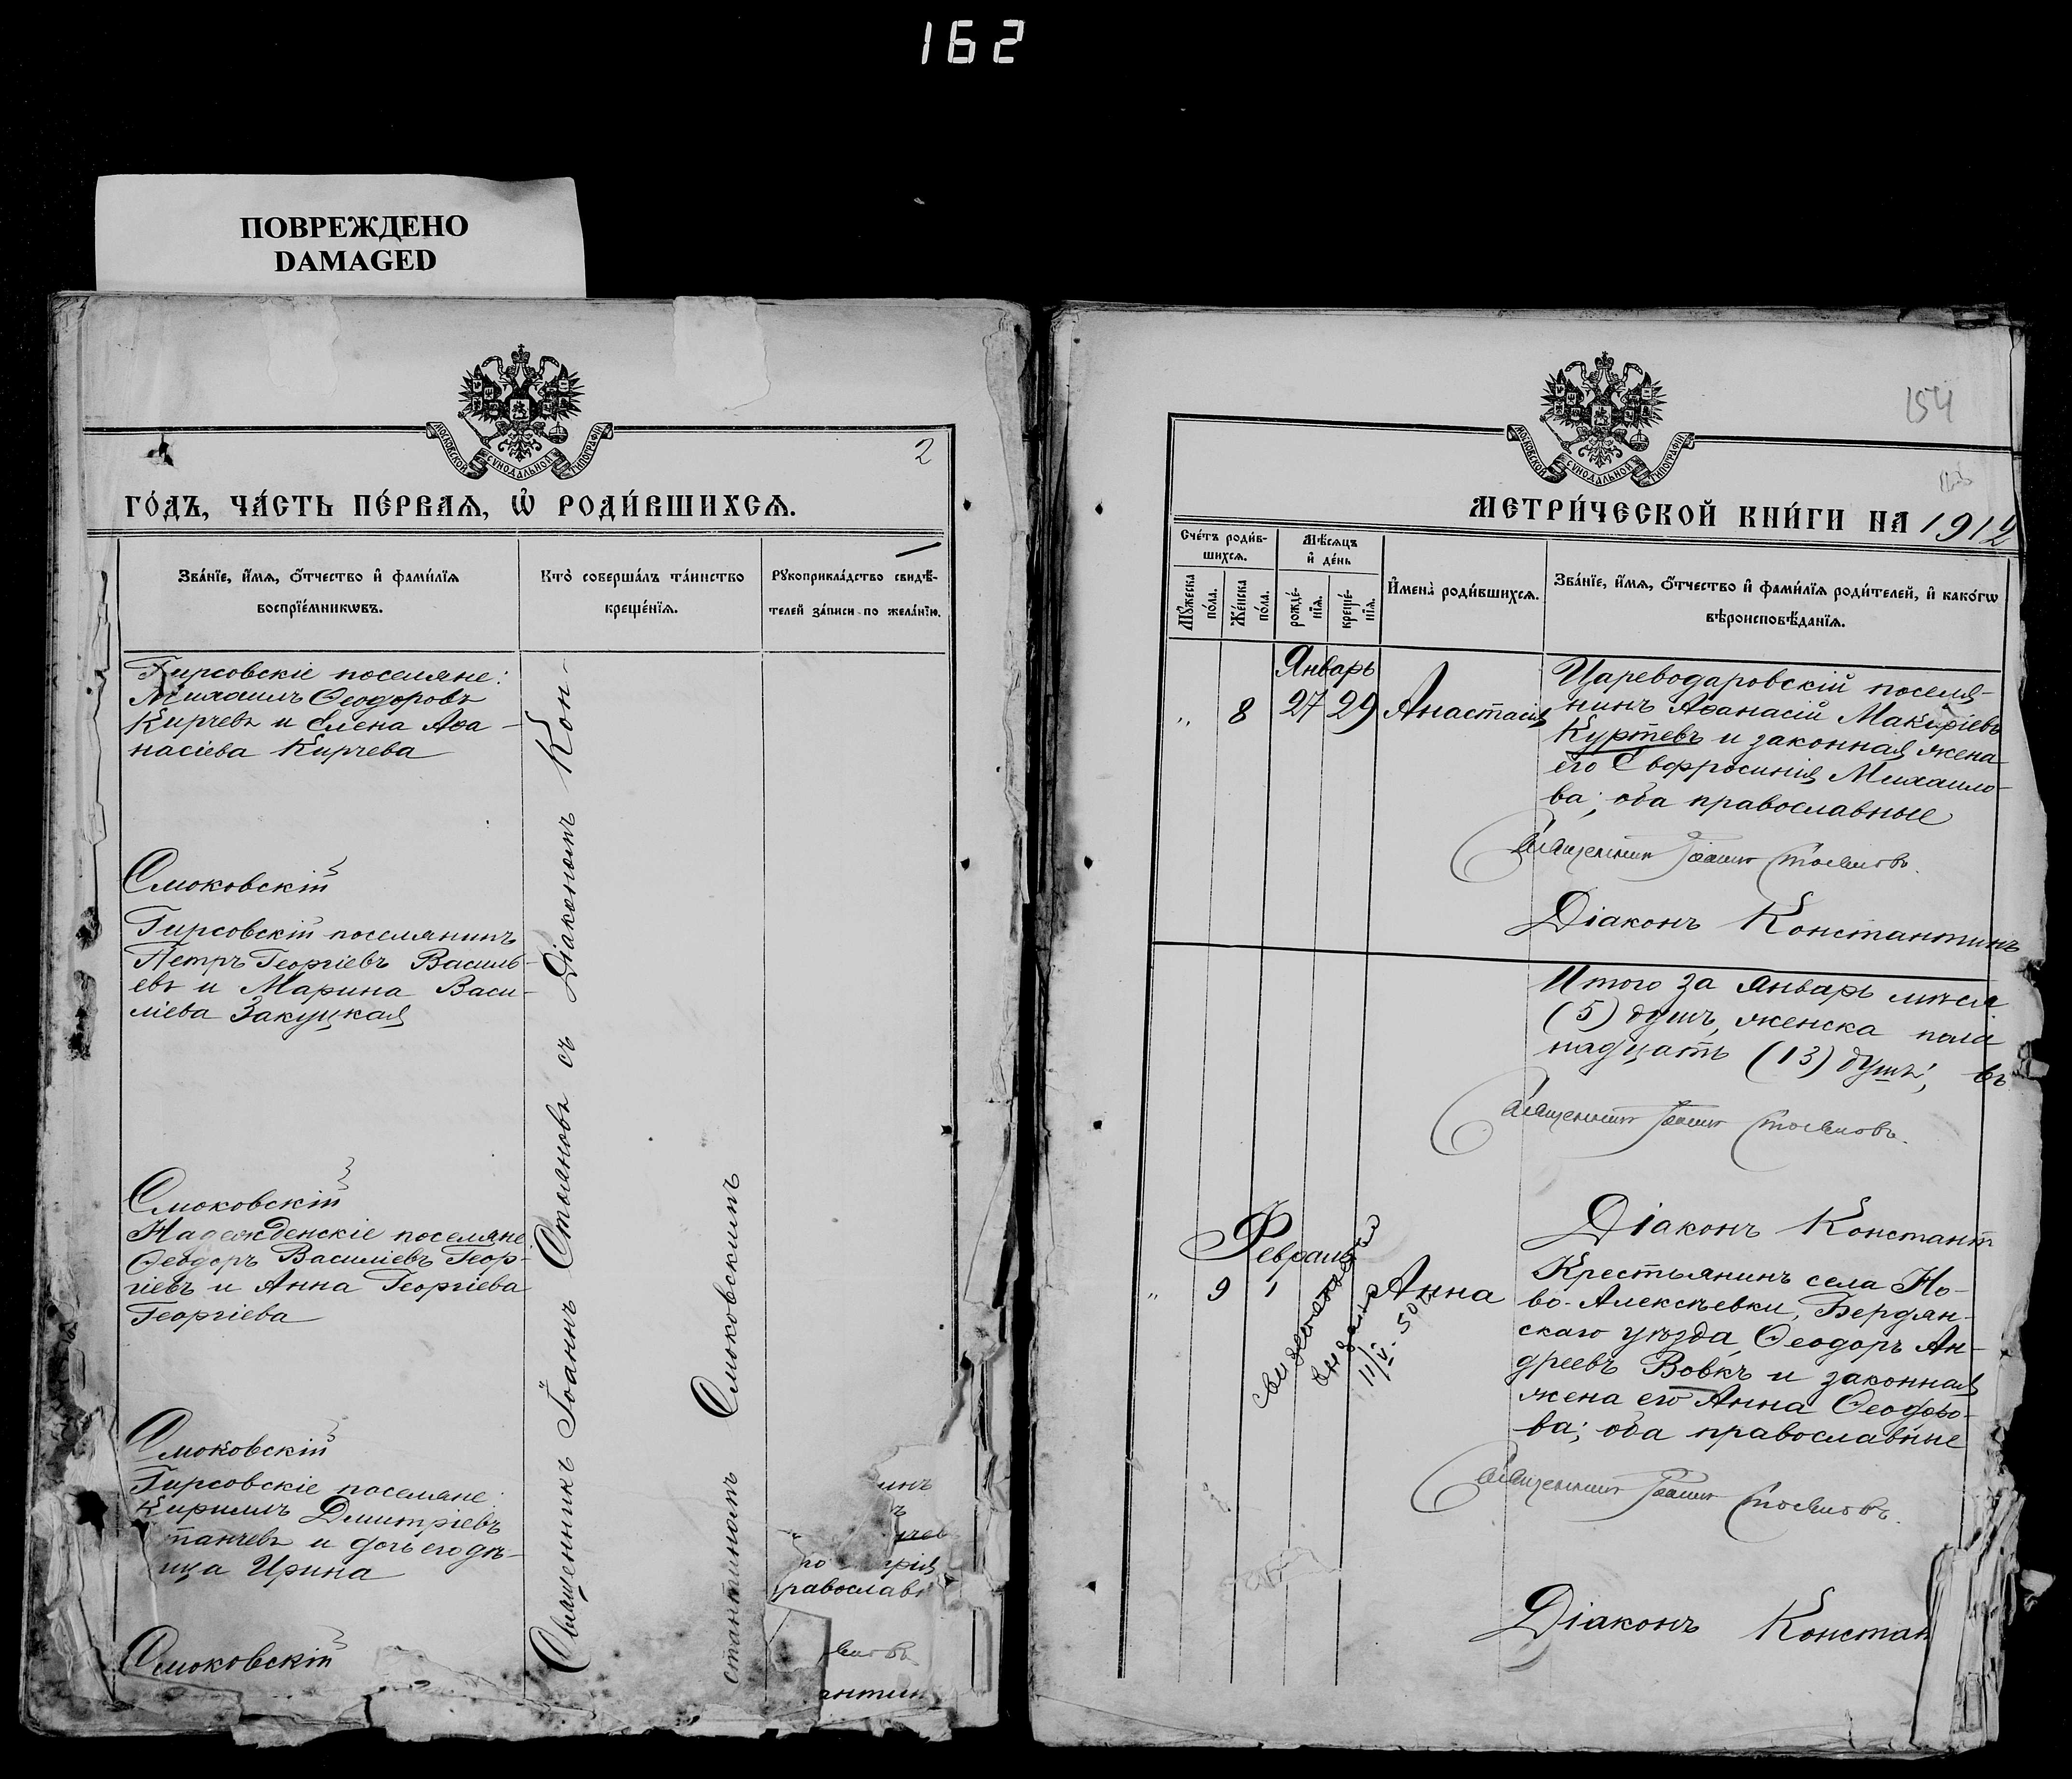 162
ПОВРЕЖДЕНО
DAMAGED
МОСКОВСКОЙ СѴНОДАЛЬНОЙ ТИПОГРАФІИ
2
ГО́ДЪ, ЧА́СТЬ ПЕ́РВАѦ, Ѽ РОДИ́ВШИХСѦ.
Зва́нїе, и҆́мѧ, ѻ҆́тчество и҆ фами́лїѧ
воспрїе́мникѡвъ.
Кто̀ соверша́лъ та́инство
креще́нїѧ.
Рꙋкоприкла́дство свидѣ́-
телей за́писи по жела́нїю.
Гирсовскіе поселяне:
Михаилъ Ѳеодоровъ
Кирчевъ и Елена Аѳа-
насіева Кирчева
Смоковскій
Гирсовскій поселянинъ
Петръ Георгіевъ Василь-
евъ и Марина Васи-
ліева Закуцкая
Смоковскій
Надежденскіе поселяне
Ѳеодоръ Василіевъ Геор-
гіевъ и Анна Георгіева
Георгіева
Смоковскій
Гирсовскіе поселяне:
Кириллъ Димитріевъ
танчевъ и дочь его дѣ-
ица Ирина
Смоковскій
Священникъ Іоаннъ Стояновъ съ Діакономъ Кон-
стантиномъ Смоковскимъ
инъ
ъ
чев
по рія
равослав
антин
154
МОСКОВСКОЙ СѴНОДАЛЬНОЙ ТИПОГРАФІИ
МЕТРИ́ЧЕСКОЙ КНИ́ГИ НА 1912
Сче́тъ роди́в-
шихсѧ.
Мꙋ́жеска
по́ла.
Же́нска
по́ла.
Мѣ́сѧцъ
и҆ де́нь
рожде́-
нїѧ.
креще́-
нїѧ.
И҆мена̀ роди́вшихсѧ.
Зва́нїе, и҆́мѧ, ѻ҆́тчество и҆ фами́лїѧ роди́телей, и҆ како́гѡ
вѣроисповѣ́данїѧ.
Январь
" 8 27 29 Анастасія
Цареводаровскій поселя-
нинъ Аѳанасій Макаріевъ
Куртевъ и законная жена
его Евфросинія Михаило-
ва; оба православные
Священникъ Іоаннъ Стояновъ.
Діаконъ Константинъ
Итого за Январь мѣся
(5) душъ, женска пола
надцать (13) душъ, въ
Священникъ Іоаннъ Стояновъ.
Діаконъ Константі
Февраль
" 9 1 Анна
11/V-50
Крестьянинъ села Но-
во-Алексѣевки, Бердян-
скаго уѣзда Ѳеодоръ Ан-
дреевъ Вовкъ и законная
жена его Анна Ѳеодоро-
ва; оба православные
Священникъ Іоаннъ Стояновъ.
Діаконъ Констан